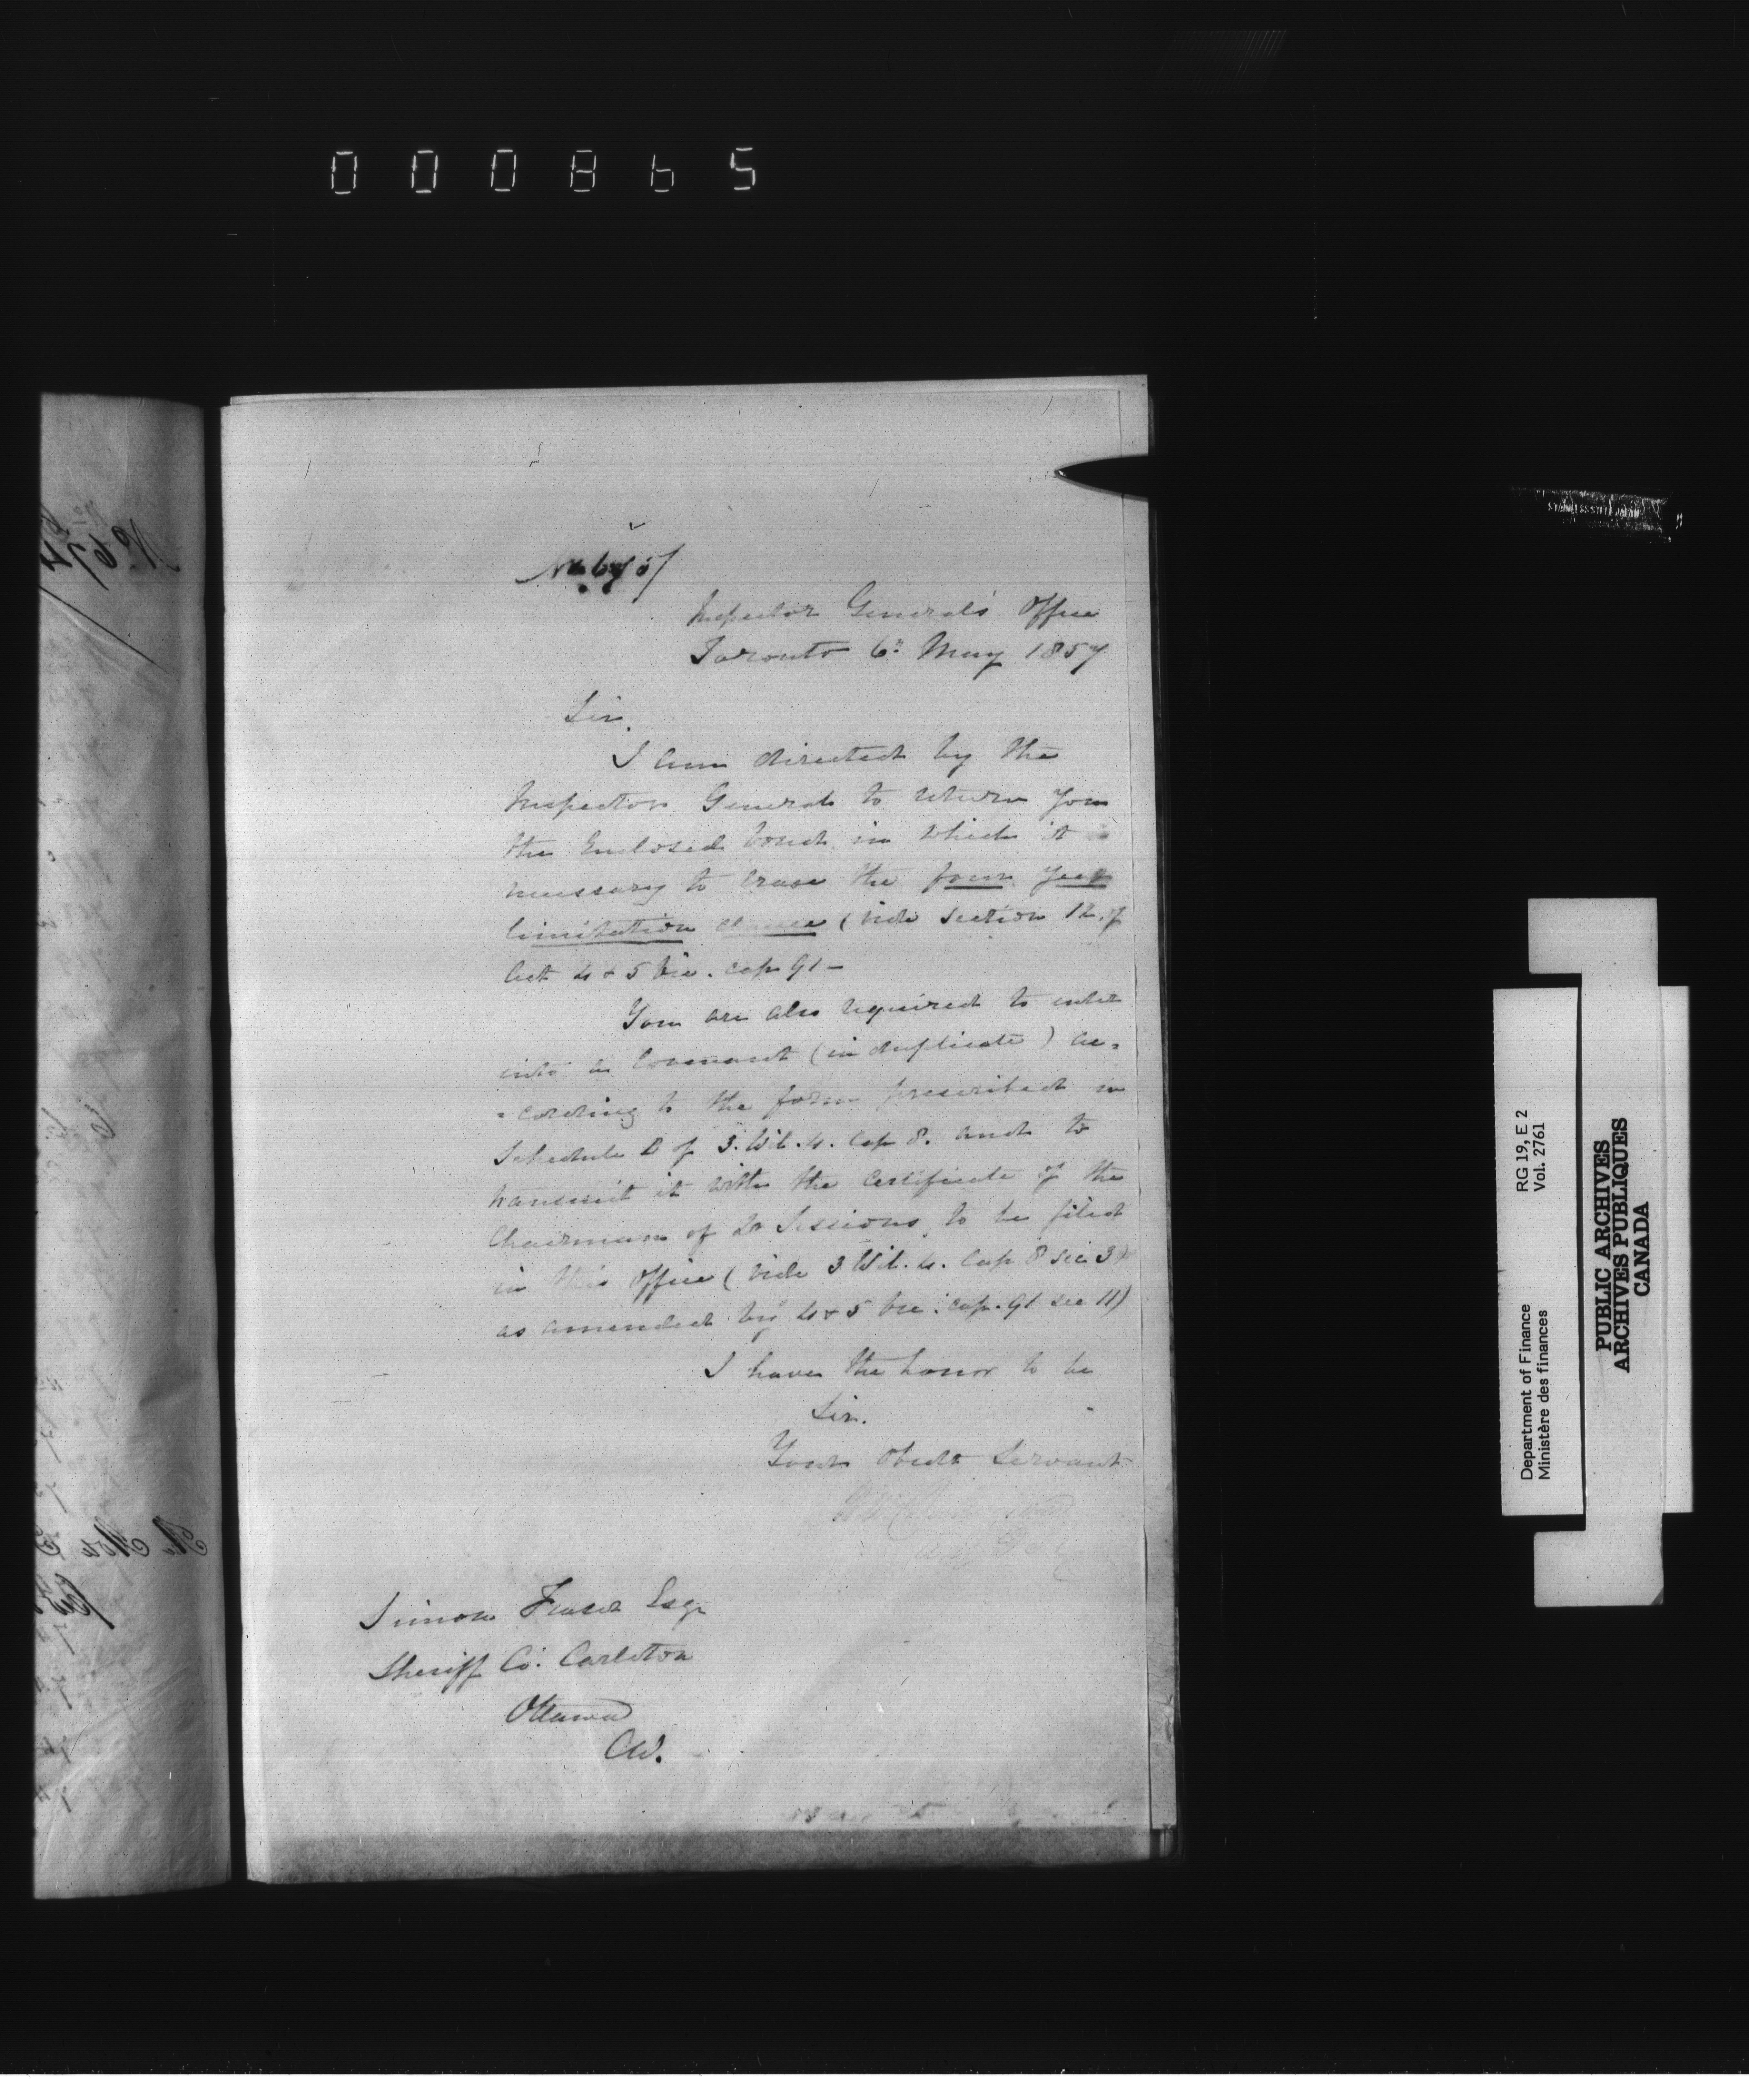 000865
No 675/
Inspector General's Office
Toronto 6th May 1857
Sir,
I am directed by the
Inspector General to return you
the Enclosed bond in which it is
necessary to erase the four year
limitation clause (vide section 12 of
Act 4 & 5 Vic. cap 91 -
You are also required to enter
into a Covenant (in duplicate) ac=
=cording to the form prescribed in
Schedule D of 3. Wil. 4. Cap 8. and to
transmit it with the Certificate of the
Chairman of Qr Sessions, to be filed
in this Office (vide 3 Wil. 4. Cap 8 Sec 3)
as amended by 4 & 5 Vic: cap. 91 sec 11)
I have the honor to be
Sir.
Your Obedt Servant
Simon Fraser Esqr
Sheriff Co: Carleton
Ottawa
CW.
Department of Finance RG 19, E 2
Ministère des finances Vol. 2761
PUBLIC ARCHIVES
ARCHIVES PUBLIQUES
CANADA